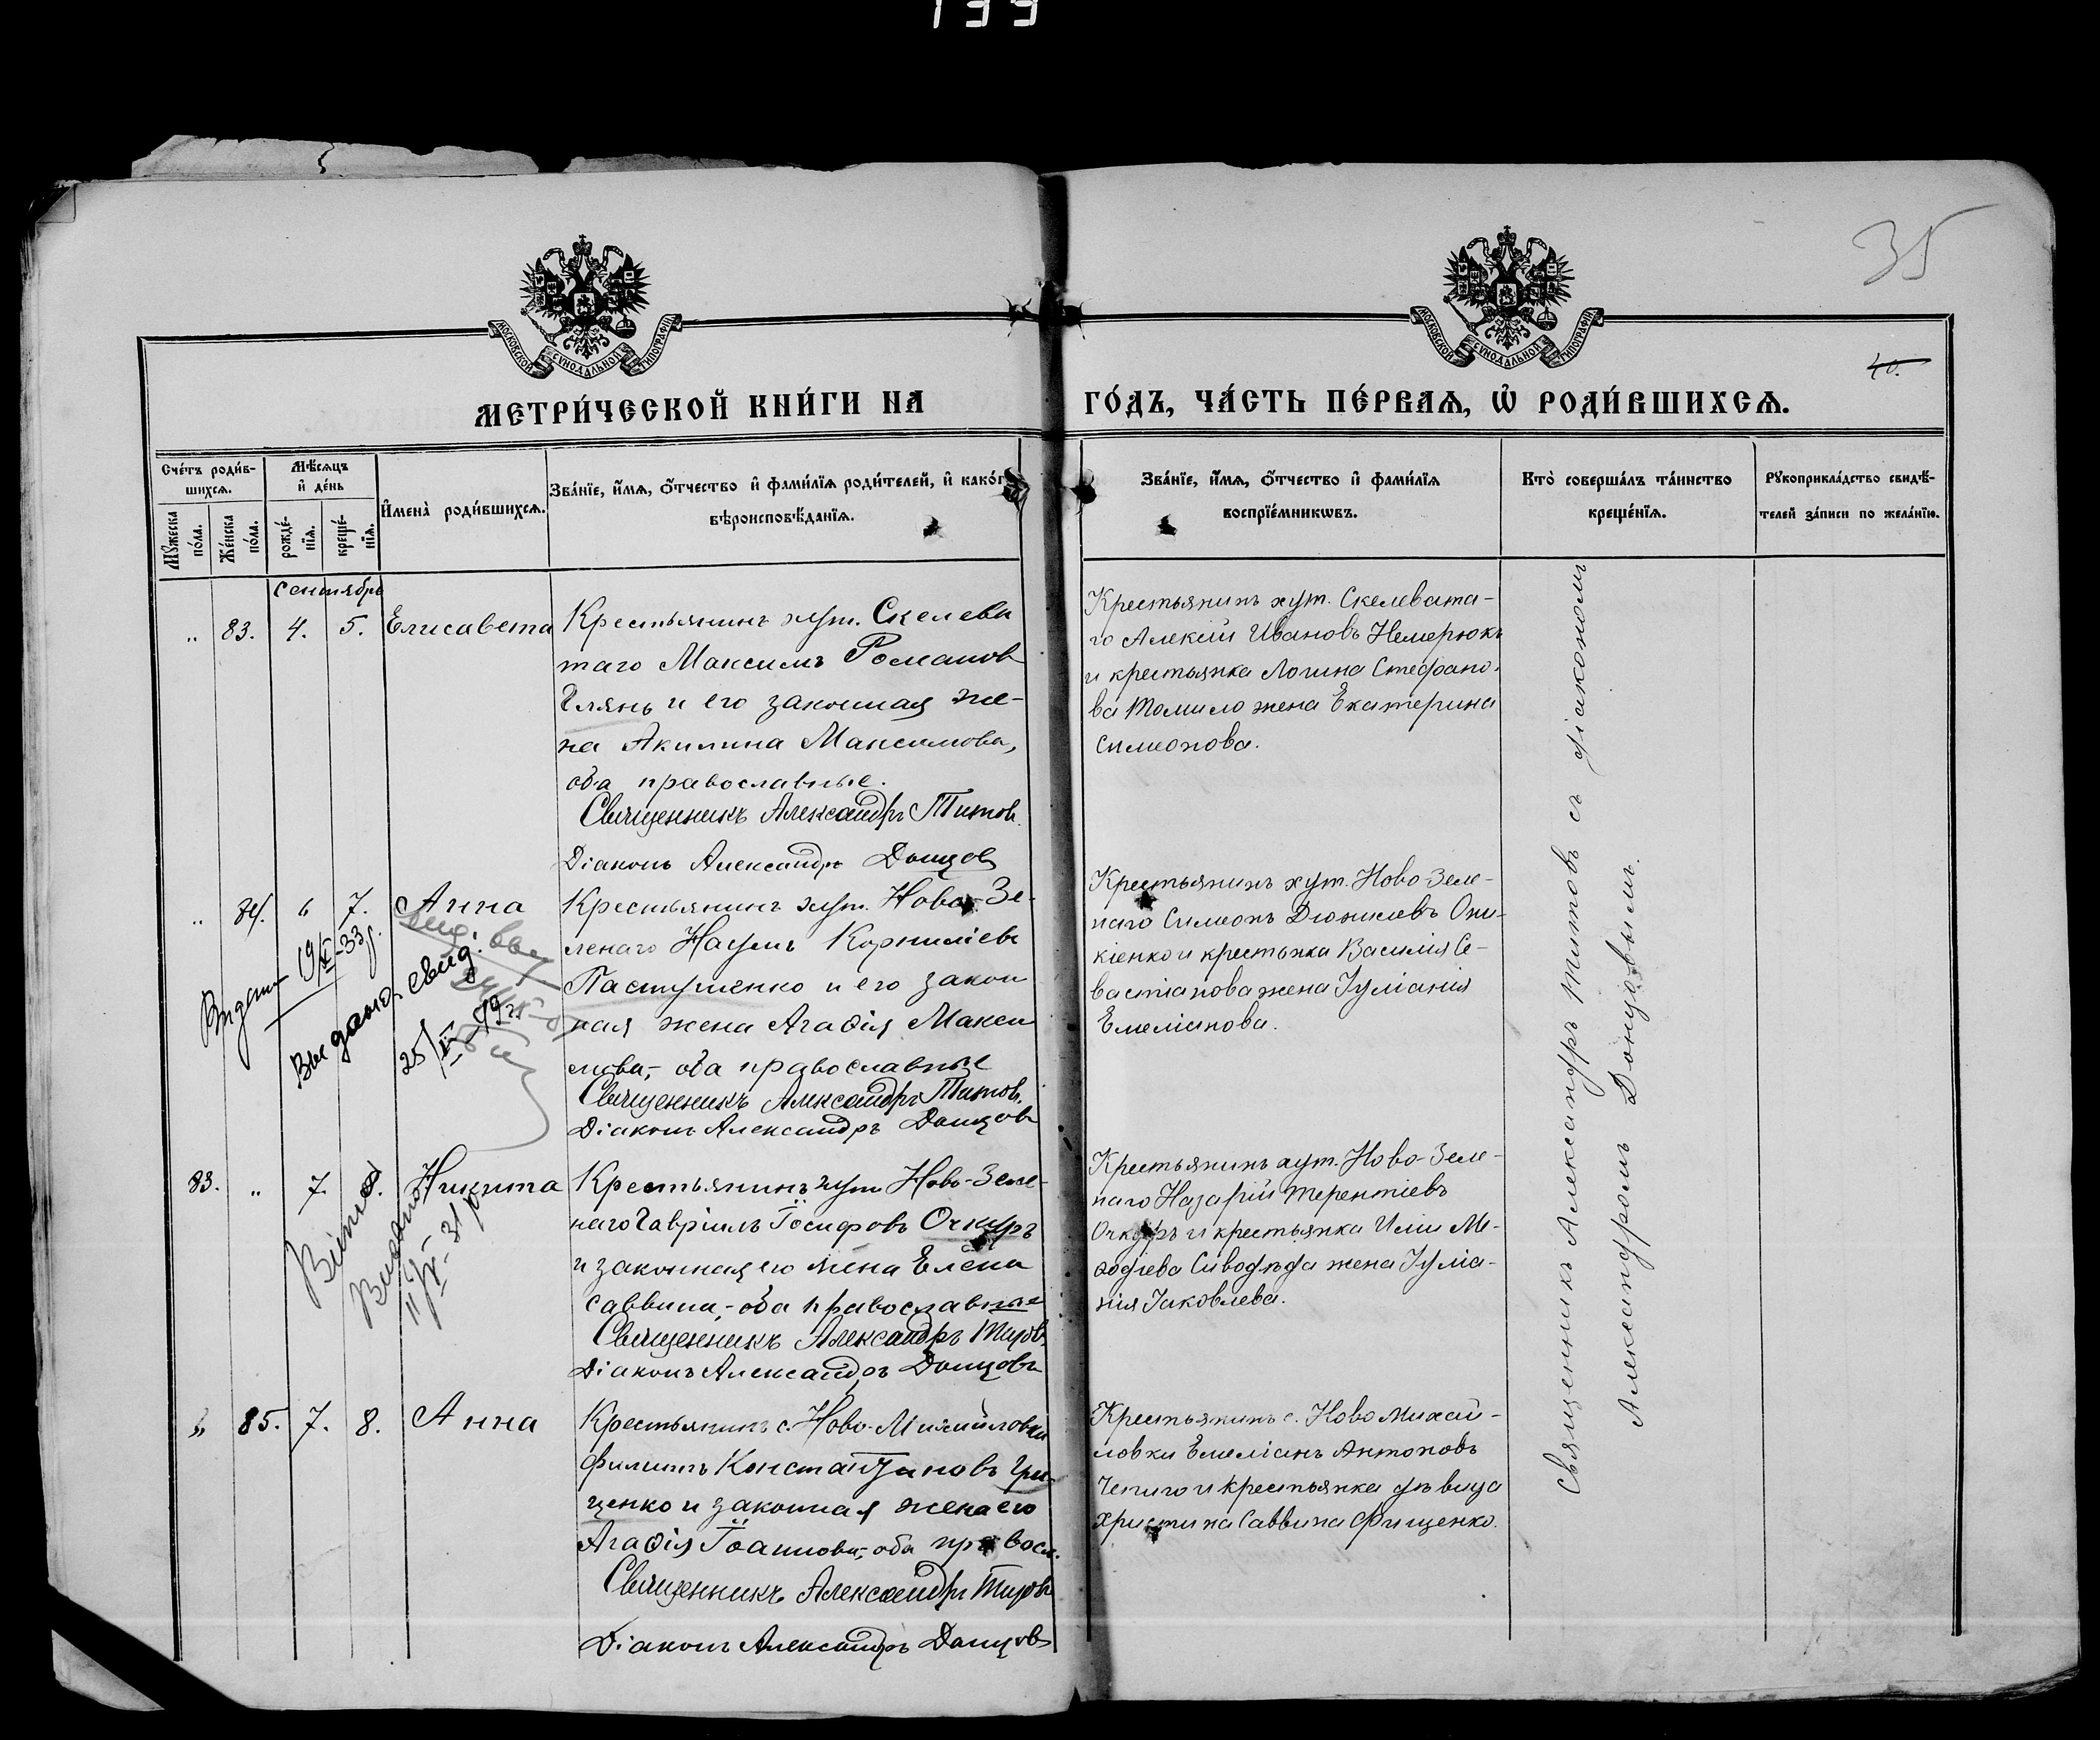 199
35
40.
МОСКОВСКОЙ СУНОДАЛЬНОЙ ТИПОГРАФІИ
МОСКОВСКОЙ СУНОДАЛЬНОЙ ТИПОГРАФІИ
МЕТРИ́ЧЕСКОЙ КНИ́ГИ НА
ГО́ДЪ, ЧА́СТЬ ПЕ́РВАЯ, Ѡ РОДИ́ВШИХСЯ.
Сче́тъ роди́в-
шихся.
Мꙋ́жеска
по́ла.
Же́нска
по́ла.
Мѣ́сяцъ
и де́нь
рожде́-
нїя.
креще́-
нїя.
Имена̀ роди́вшихся.
Зва́нїе, и́мя, о́тчество и фами́лїя роди́телей, и како́г
вѣроисповѣ́данїя.
Зва́нїе, и́мя, о́тчество и фами́лїя
воспрїе́мникѡвъ.
Кто̀ соверша́лъ та́инство
креще́нїя.
Рꙋкоприкла́дство свидѣ́-
телей за́писи по жела́нїю.
Сентябрь
„ 83. 4. 5. Елисавета
Крестьянинъ хут. Скелева
таго Максимъ Романов
Глянь и его законная же-
на Акилина Максимова,
оба православные.
Священникъ Александръ Титов.
Діаконъ Александръ Донцов
Крестьянинъ хут. Скелевата-
го Алексій Ивановъ Немерюкъ
и крестьянка Логина Стефано-
ва Томило жена Екатерина
Симеонова.
„ 84. 6 7. Анна
Выдано 19/X-33 г.
Выдано свид.
25/IV-49 г.
Крестьянинъ хут. Ново-Зе-
ленаго Наумъ Корниліевъ
Пастушенко и его закон
ная жена Агаѳія Макси
мова,- оба православные
Священникъ Александръ Титов.
Діаконъ Александръ Донцовъ
Крестьянинъ хут. Ново-Зеле-
наго Симеонъ Діонисіевъ Они-
кіенко и крестьянка Василія Се-
вастіанова жена Іуліанія
Емеліанова.
83. „ 7. 8. Никита
Крестьянинъ хут. Ново-Зеле-
наго Гавріилъ Іосифовъ Очкуръ
и законная его жена Елена
Саввина,- оба православные
Священникъ Александръ Титовъ
Діаконъ Александръ Донцовъ
Крестьянинъ хут. Ново-Зеле-
наго Назарій Терентіевъ
Очкуръ и крестьянка Иліи Ме-
ѳодіева Сиводѣда жена Іуліа-
нія Іаковлева.
„ 85. 7. 8. Анна
Крестьянинъ с. Ново-Михайловки
Филиппъ Константиновъ Гри-
ценко и законная жена его
Агаѳія Іоаннова,- оба правосл.
Священникъ Александръ Титовъ
Діаконъ Александръ Донцовъ
Крестьянинъ с. Ново Михай-
ловки Емеліанъ Антоновъ
Чепиго и крестьянка дѣвица
Христина Саввина Фищенко.
Священникъ Александръ Титовъ съ діакономъ
Александромъ Донцовымъ.